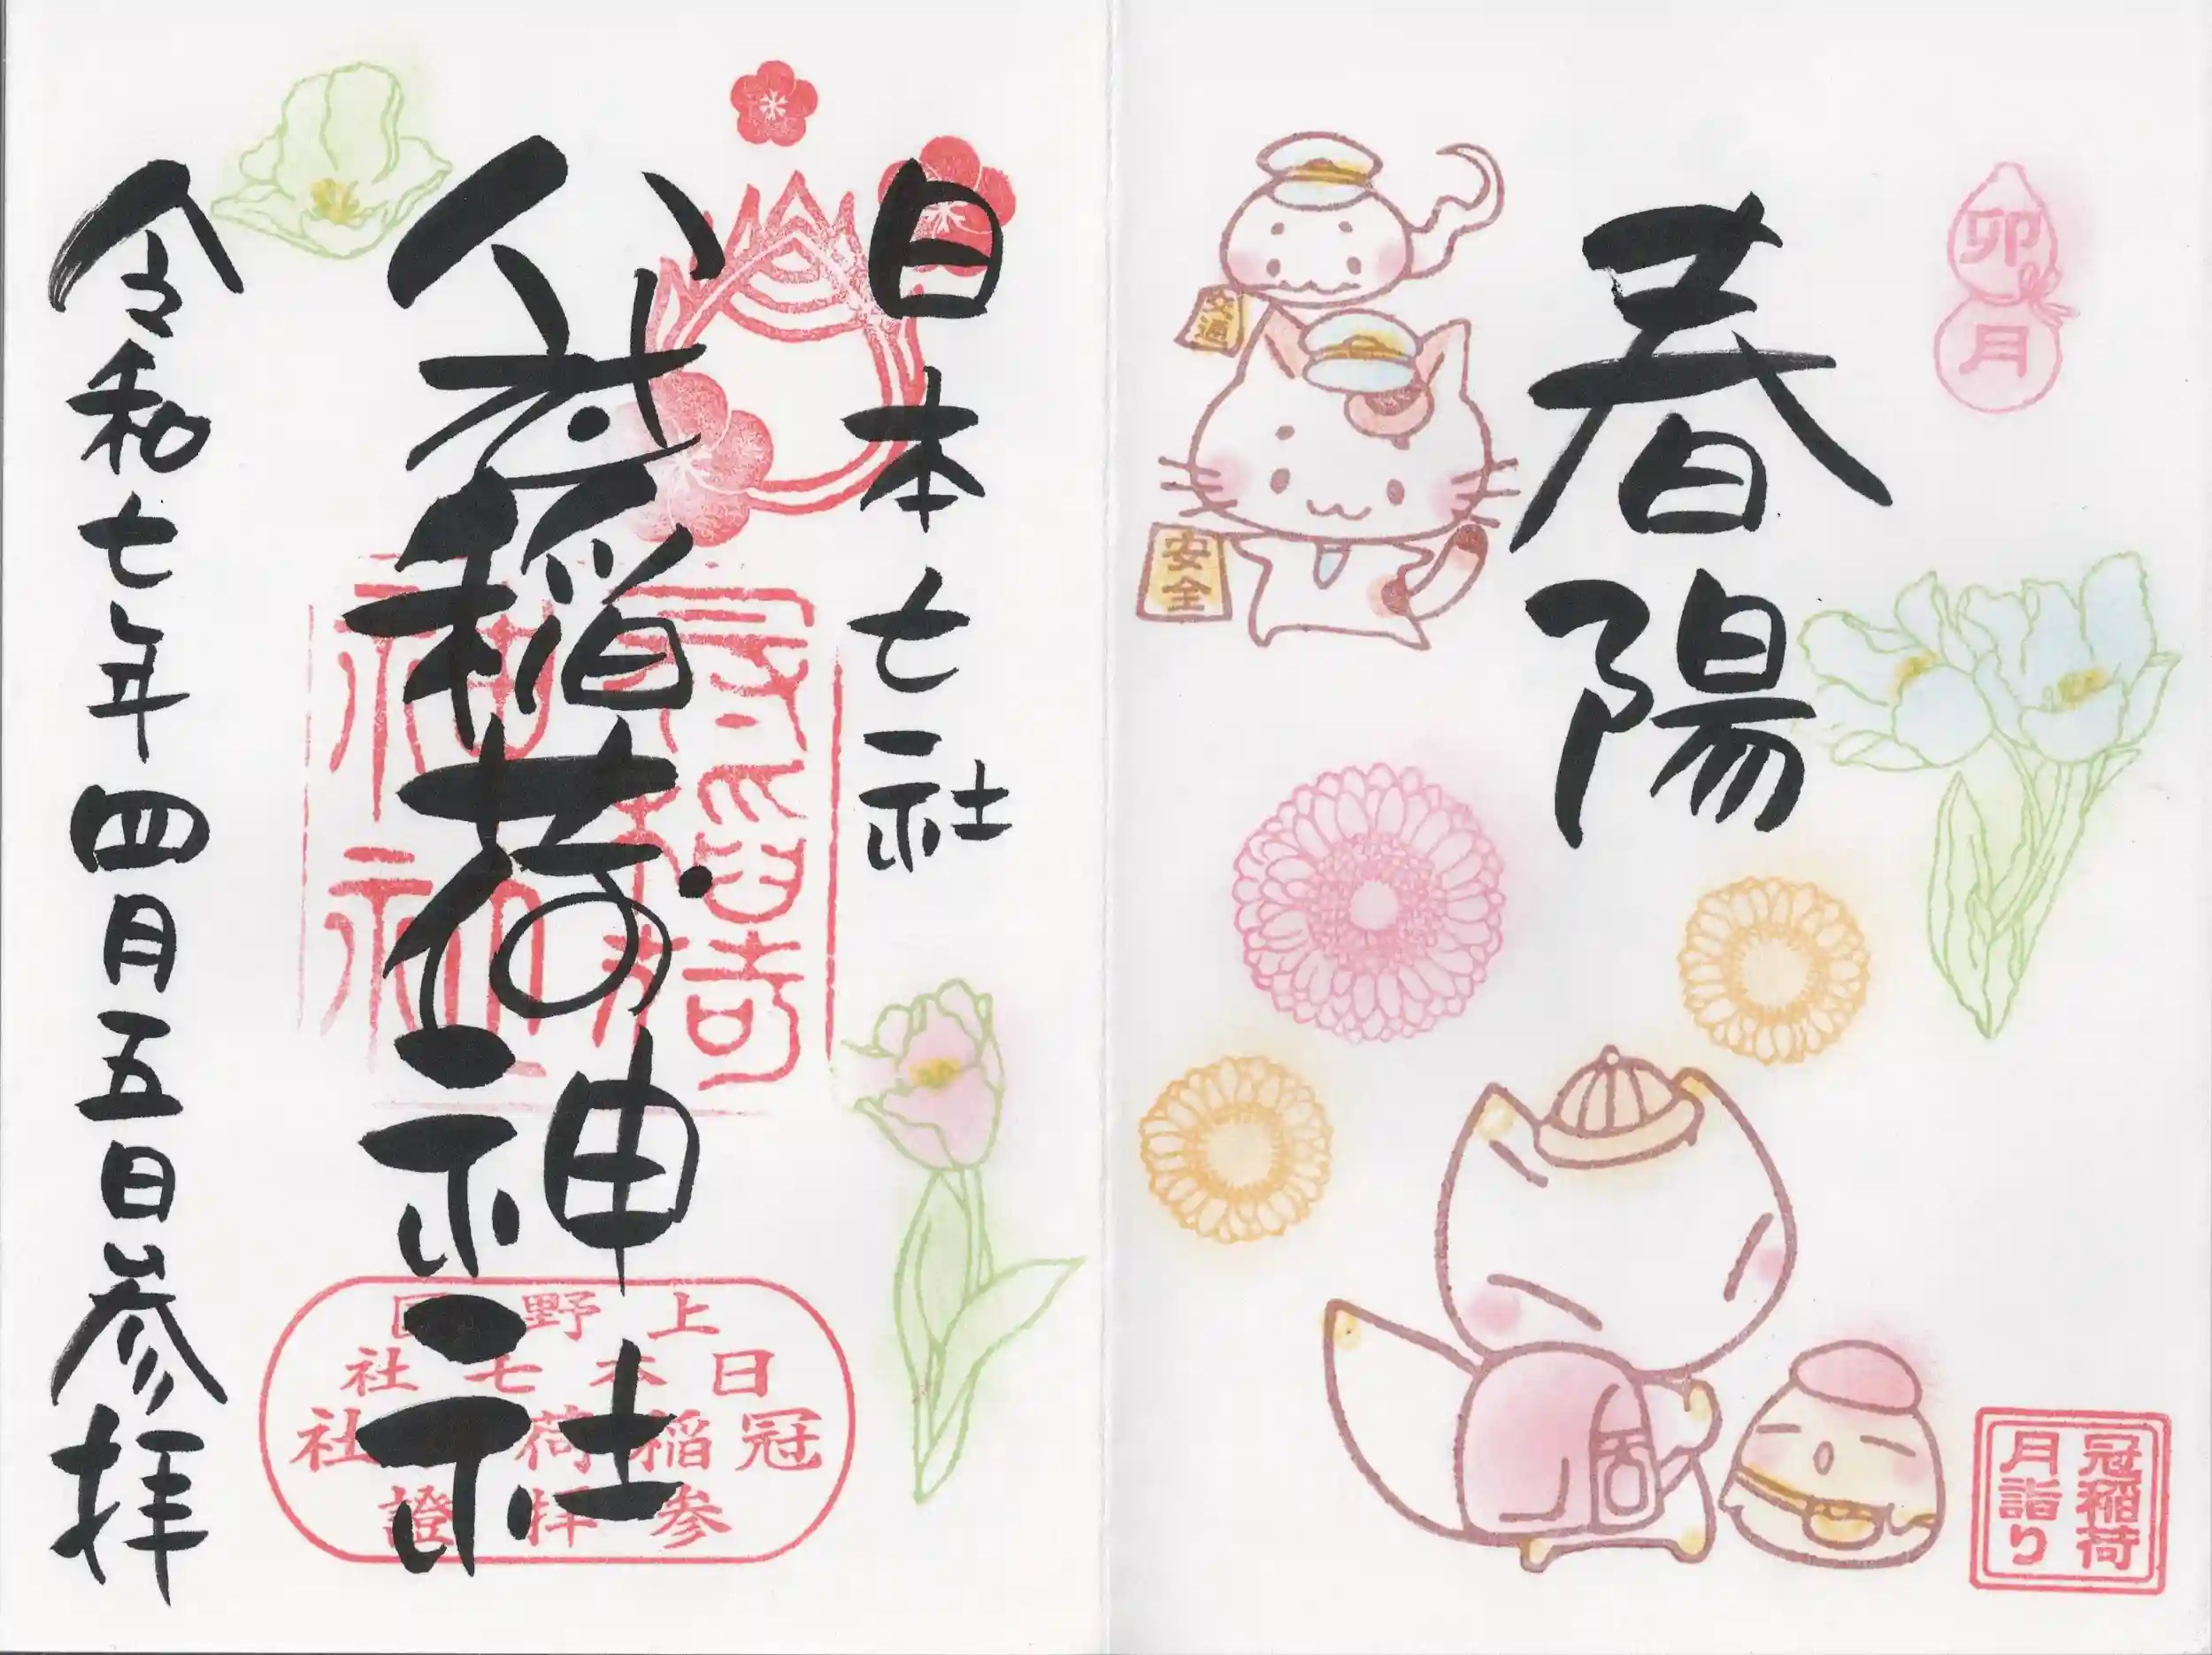 卯月
春陽
交通
安全
冠稲荷
月詣り
日本七社
冠稲荷神社
上野国
日本七社
冠稲荷 社
参拝證
令和七年四月五日参拝